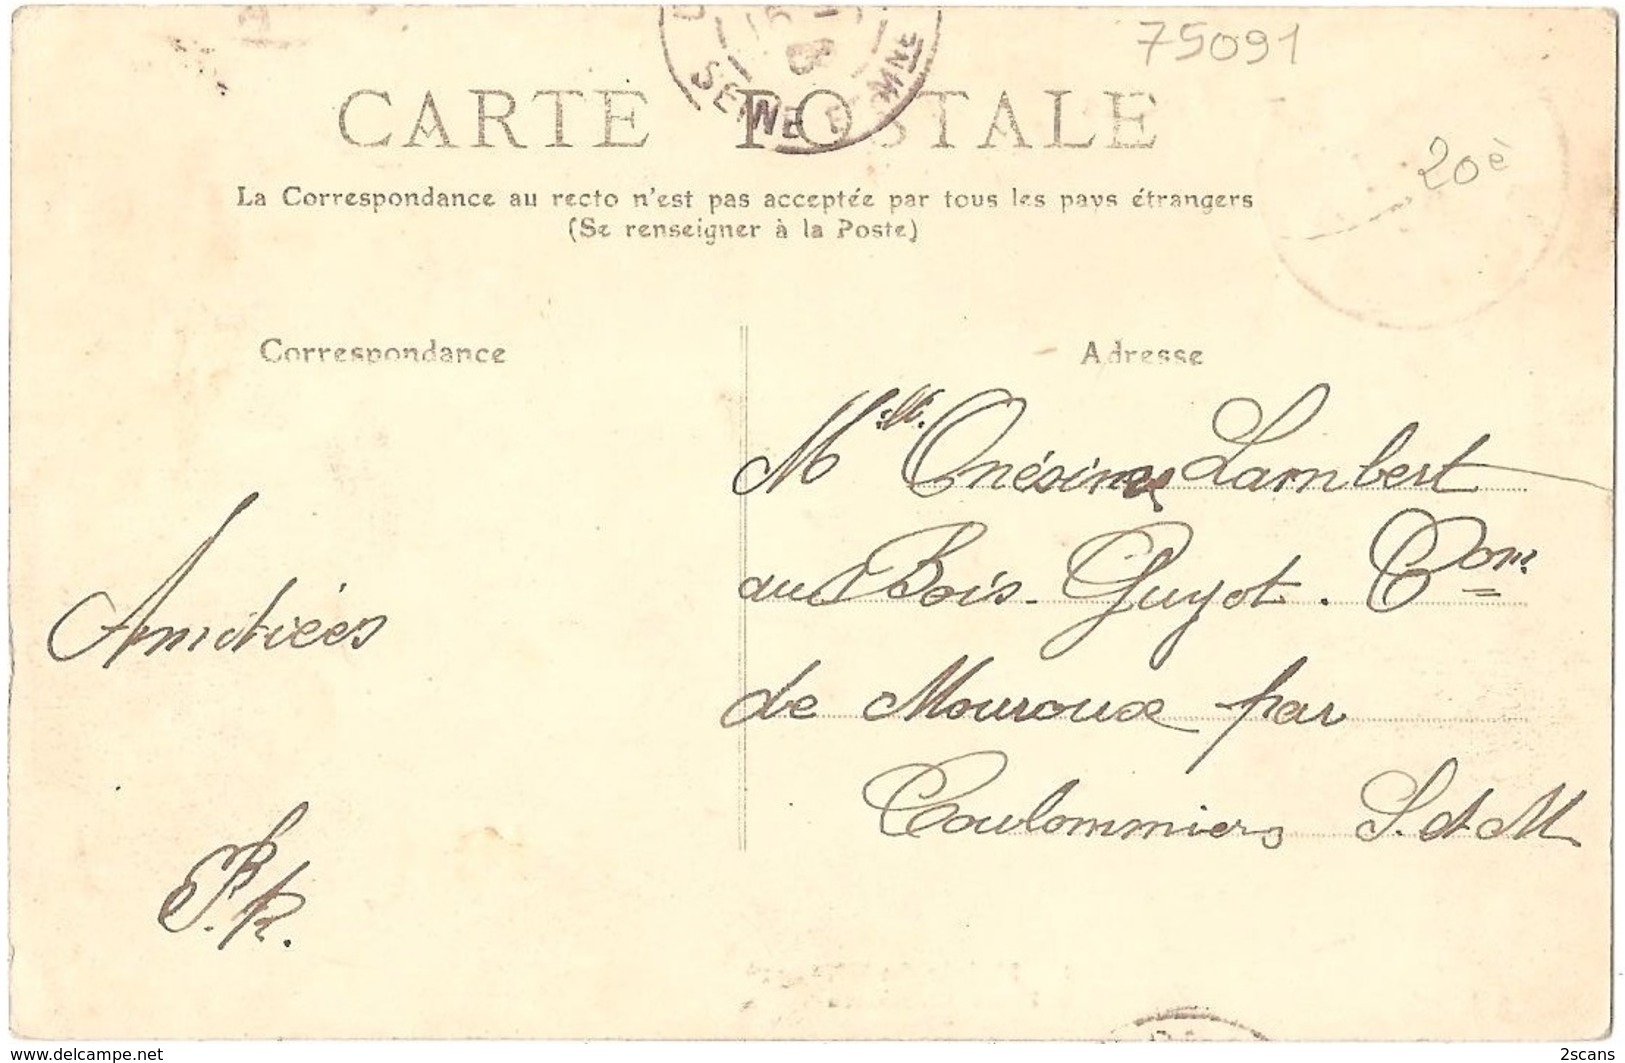 75091
SEINE ET MNE
CARTE POSTALE
20è
La Correspondance au recto n'est pas acceptée par tous les pays étrangers
(Se renseigner à la Poste)
Correspondance
Amitiées
Adresse
Mlle. Onésime Lambert
au Bois-Guyot. Com.
de Mouroux par
Coulommiers S. et M
www.delcampe.net
2scans